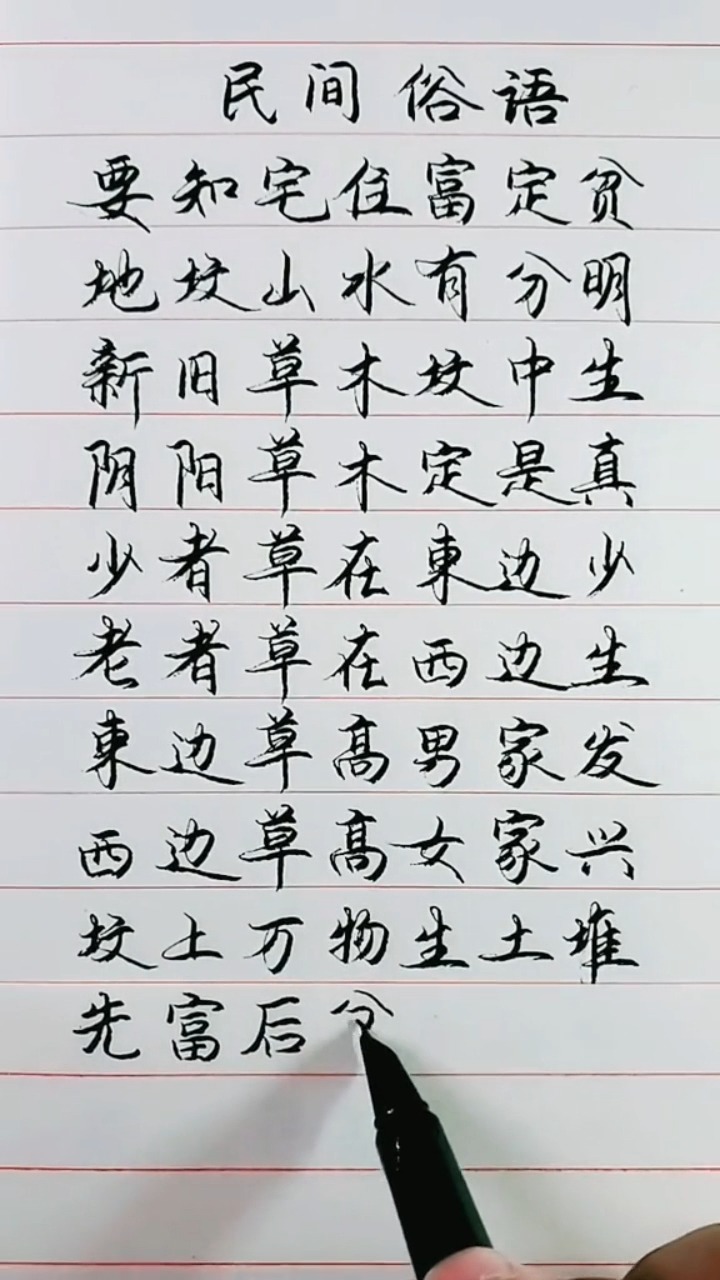 民间俗语
要知宅住富定贫
地坟山水有分明
新旧草木坟中生
阴阳草木定是真
少者草在東边少
老者草在西边生
東边草高男家发
西边草高女家兴
坟上万物生土堆
先富后分